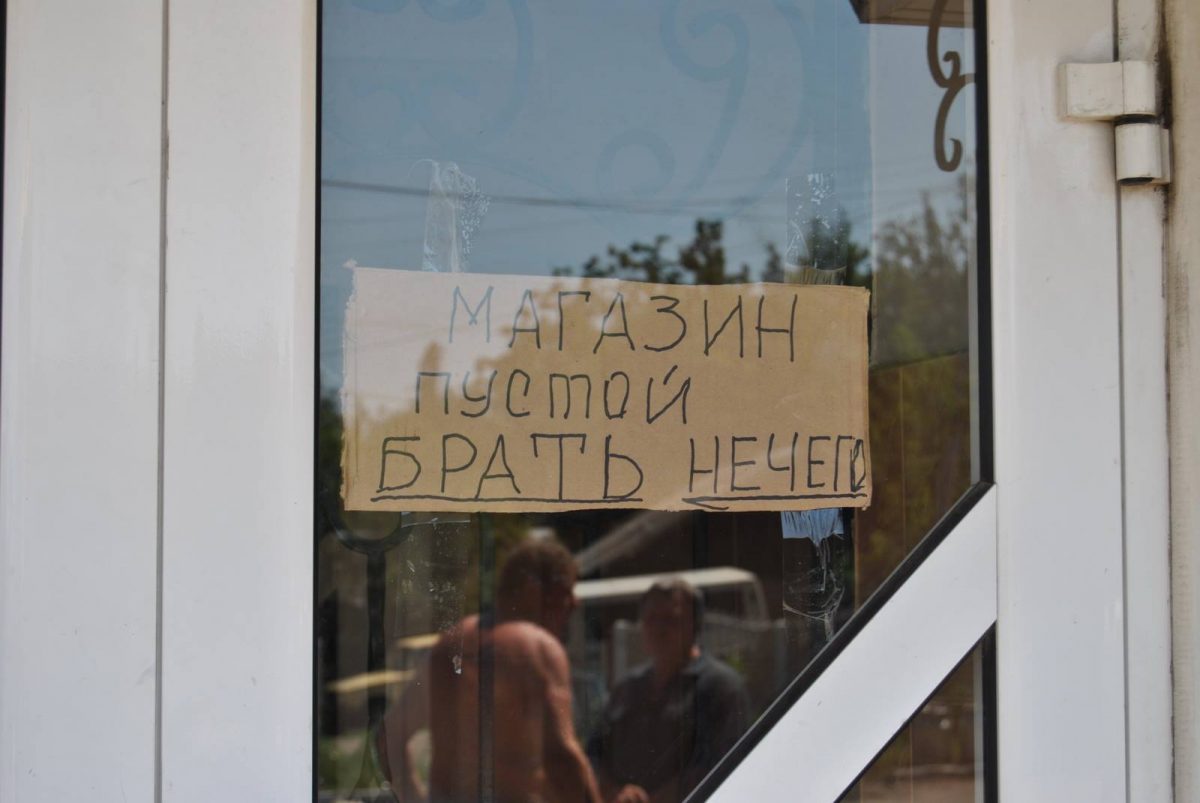 МАГАЗИН
пустой
БРАТЬ НЕЧЕГО